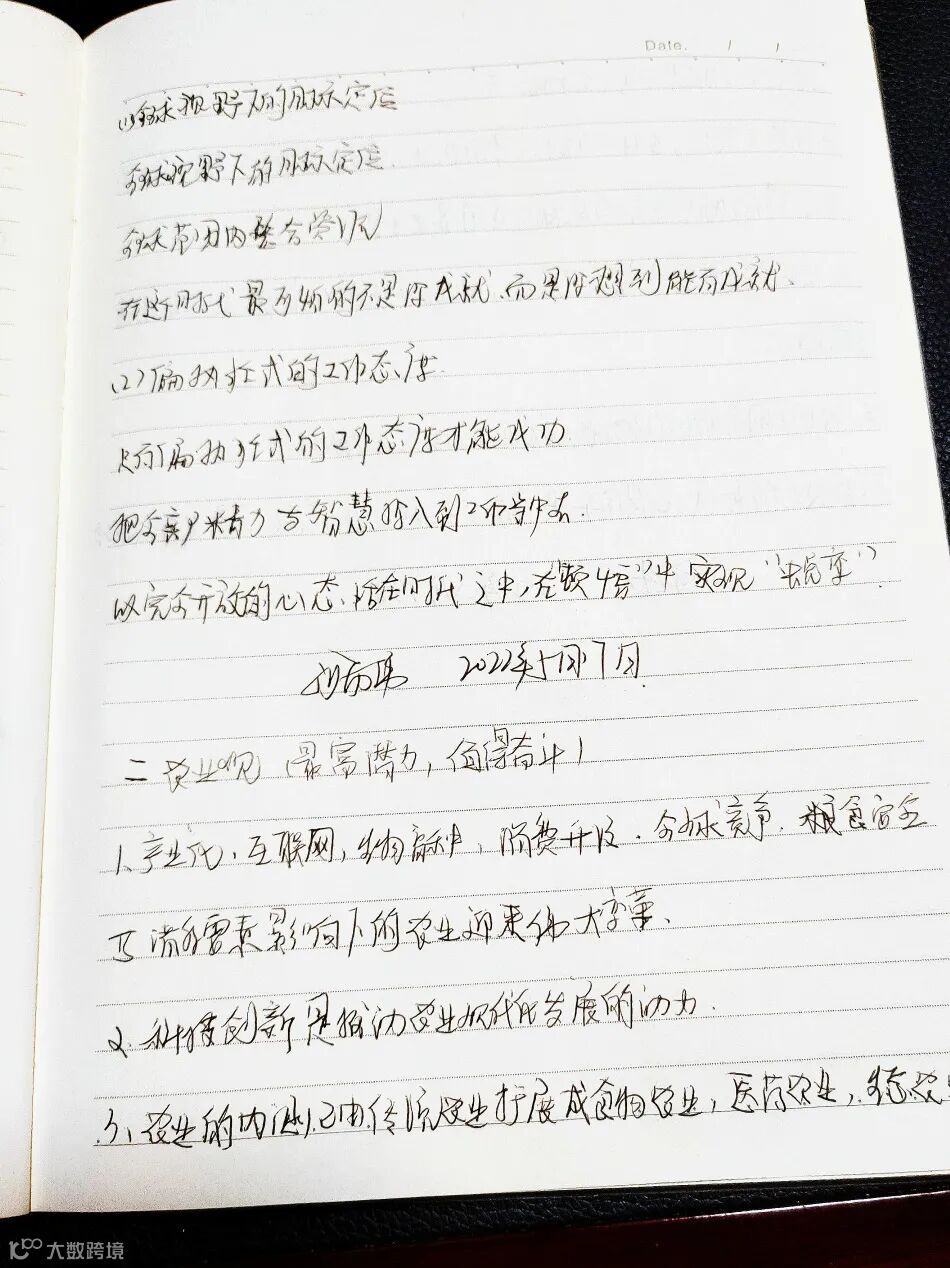 Date. / /
(1)全球视野下的目标定位
全球视野下的目标定位
全球范围内整合资源
在这时代最可怕的不是你成就、而是你想到能否成就、
(2)偏执狂式的工作态度
只有偏执狂式的工作态度才能成功
把全部精力与智慧投入到工作当中去.
以完全开放的心态、活在时代之中,在 中实现“ 变”.
2022年5月17日
二 农业观 最富潜力,值得奋斗!
1、产业化、互联网,生物育种,消费升级.全球竞争.粮食安全
等诸多要素影响下的农业迎来伟大变革.
2.科技创新是推动农业现代化发展的动力.
3、农业的内涵已由传统农业扩展成食物农业,医药农业,生态农
大数跨境